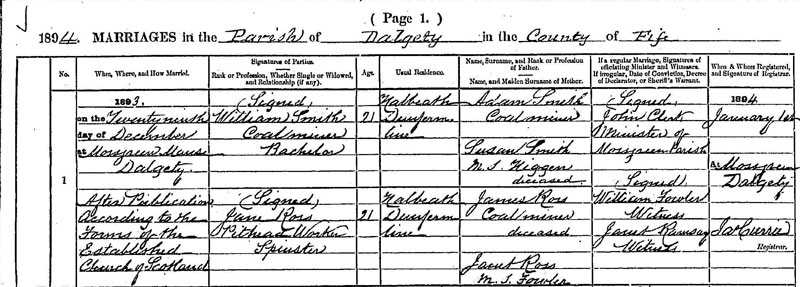 ( Page 1. )
1894. MARRIAGES in the Parish of Dalgety in the County of Fife
No.
When, Where, and How Married.
Signatures of Parties.
Rank or Profession, Whether Single or Widowed, and Relationship (if any).
Age.
Usual Residence.
Name, Surname, and Rank or Profession of Father.
Name, and Maiden Surname of Mother.
If a regular Marriage, Signatures of officiating Minister and Witnesses.
If irregular, Date of Conviction, Decree of Declarator, or Sheriff's Warrant.
When & Where Registered, and Signature of Registrar.
1
1893.
on the Twentyninth
day of December
at Mossgreen Manse
Dalgety.
After Publication
According to the
Forms of the
Established
Church of Scotland
(Signed)
William Smith
Coalminer
Bachelor
(Signed)
Jane Ross
Pithead Worker
Spinster
21
21
Halbeath
Dunferm
line
Halbeath
Dunferm
line
Adam Smith
Coalminer
Susan Smith
M.S. Higgen
deceased.
James Ross
Coalminer
deceased
Janet Ross
M.S. Fowler
(Signed)
John Clerk
Minister of
Mossgreen Parish
(Signed)
William Fowler
Witness
Janet Ramsay
Witness
1894
January 1st
At Mossgreen
Dalgety
Jas Currie
Registrar.